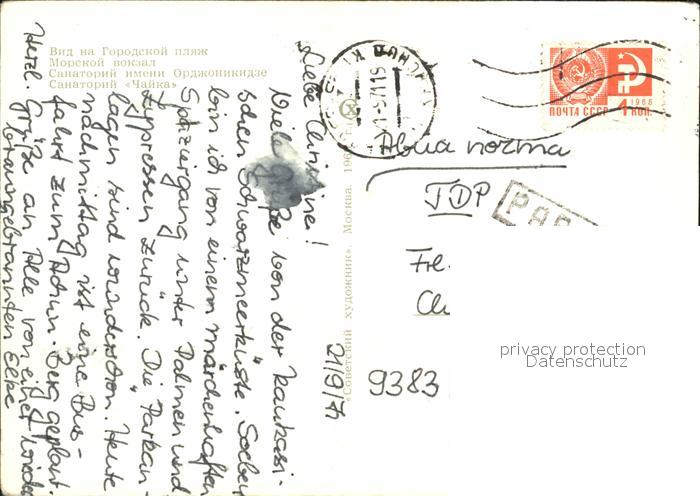 Вид на Городской пляж
Морской вокзал
Санаторий имени Орджоникидзе
Санаторий «Чайка»
Liebe Christine!
Viele Grüße von der Kaukasi-
schen Schwarzmeerküste. Soeben
bin ich von einem märchenhaften
Spaziergang unter Palmen und
Zypressen zurück. Die Parkan-
lagen sind wunderschön. Heute
nachmittag ist eine Bus-
fahrt zum Achun-Berg geplant.
Herzl. Grüße an Alle von einer wieder
braungebrannten Elke
21/9/71
«Советский художник». Москва. 196
ПОЧТА СССР
1966
4 коп.
Авиа почта
ГДР
PAR
Fr.
9383
privacy protection
Datenschutz